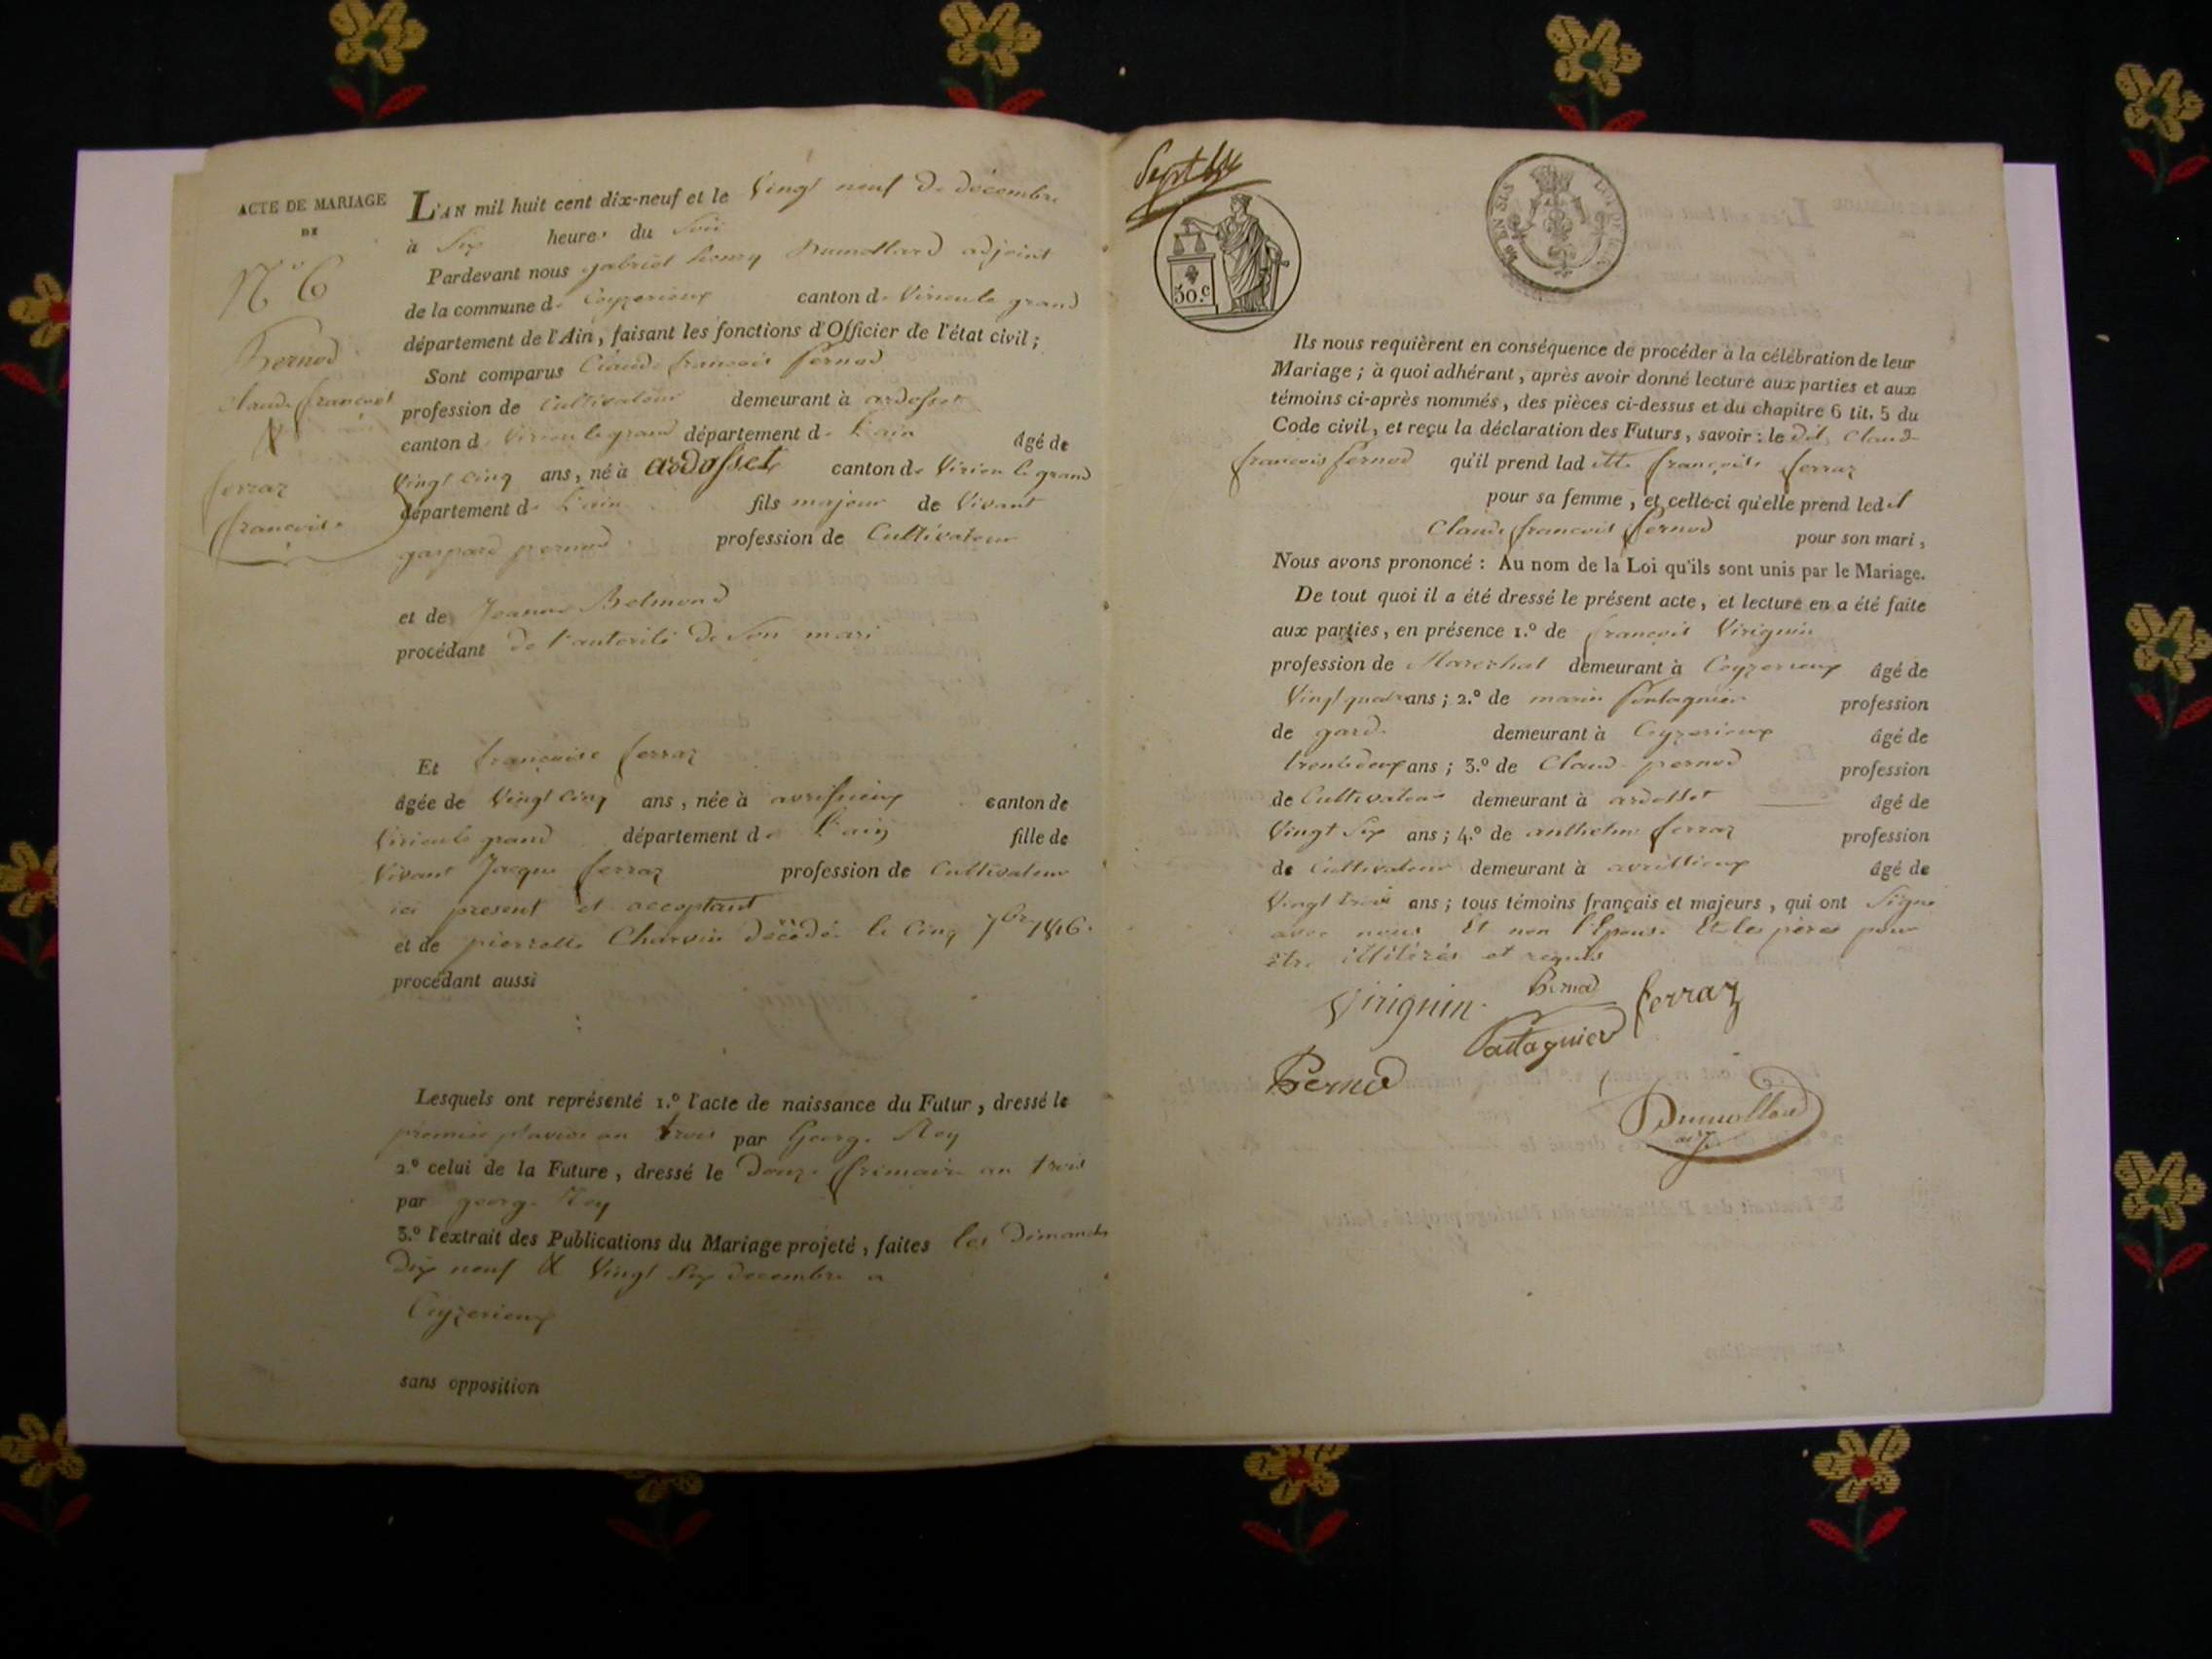 ACTE DE MARIAGE
DE
N° 6
Pernod
Claude francois
&
ferraz
francoise
L'AN mil huit cent dix-neuf et le Vingt neuf De décembre
à Six heures du Soir
Pardevant nous gabriel henry Dumollard adjoint
de la commune de Ceyzerieux canton de Virieu le grand
département de l'Ain, faisant les fonctions d'Officier de l'état civil;
Sont comparus Claude francois Pernod
profession de Cultivateur demeurant à ardosset
canton de Virieu le grand département de L'ain âgé de
Vingt cinq ans, né à ardosset canton de Virieu le grand
département de L'ain fils majeur de Vivant
gaspard pernod profession de Cultivateur
et de Jeanne Belmond
procédant de l'autorité de Son mari
Et francoise ferraz
âgée de Vingt cinq ans, née à avrissieux canton de
Virieu le grand département de L'ain fille de
Vivant Jacque ferraz profession de Cultivateur
ici present et acceptant
et de pierrette Charvin décédé le Cinq 7bre 1816.
procédant aussi
Lesquels ont représenté 1.° l'acte de naissance du Futur, dressé le
premier pluviose an trois par George Roy
2.° celui de la Future, dressé le Douze frimaire an trois
par george Roy
3.° l'extrait des Publications du Mariage projeté, faites les Dimanche
Dix neuf & Vingt Six decembre a
Ceyzerieux
sans opposition
30.c
LOI DE
EN SUS
Ils nous requièrent en conséquence de procéder à la célébration de leur
Mariage; à quoi adhérant, après avoir donné lecture aux parties et aux
témoins ci-après nommés, des pièces ci-dessus et du chapitre 6 tit. 5 du
Code civil, et reçu la déclaration des Futurs, savoir: le dit Claude
francois Pernod qu'il prend ladite françoise ferraz
pour sa femme, et celle-ci qu'elle prend ledit
Claude francois Pernod pour son mari,
Nous avons prononcé: Au nom de la Loi qu'ils sont unis par le Mariage.
De tout quoi il a été dressé le présent acte, et lecture en a été faite
aux parties, en présence 1.° de francois Viriguin
profession de Marechal demeurant à Ceyzerieux âgé de
Vingt quatre ans; 2.° de marin profession
de garde demeurant à Ceyzerieux âgé de
trente deux ans; 3.° de Claude pernod profession
de Cultivateur demeurant à ardosset âgé de
Vingt Six ans; 4.° de anthelme ferraz profession
de Cultivateur demeurant à avrissieux âgé de
Vingt trois ans; tous témoins français et majeurs, qui ont Signé
avec nous Et non l'Epouse Et les pères pour
être illitérés et requis
Viriguin Pernod ferraz
Pernod
Dumollard
adj.